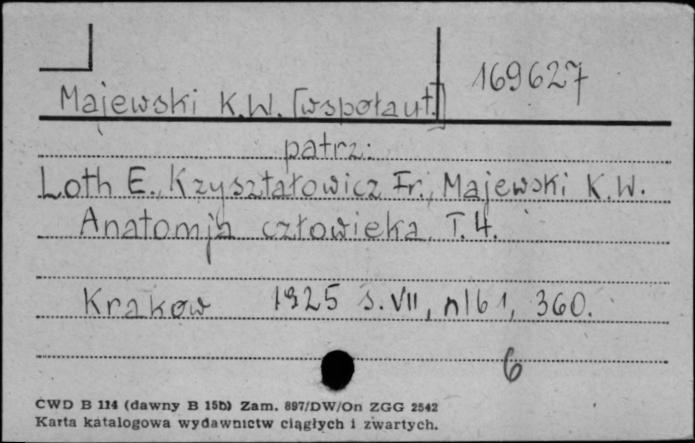 169627
Majewski K.W. [wspołaut.]
patrz:
Loth E., Krzyształowicz Fr., Majewski K.W.
Anatomja człowieka. T. 4.
Krakow 1925 s. VII, nlb 1, 360.
6
CWD B 114 (dawny B 15b) Zam. 897/DW/On ZGG 2542
Karta katalogowa wydawnictw ciągłych i zwartych.